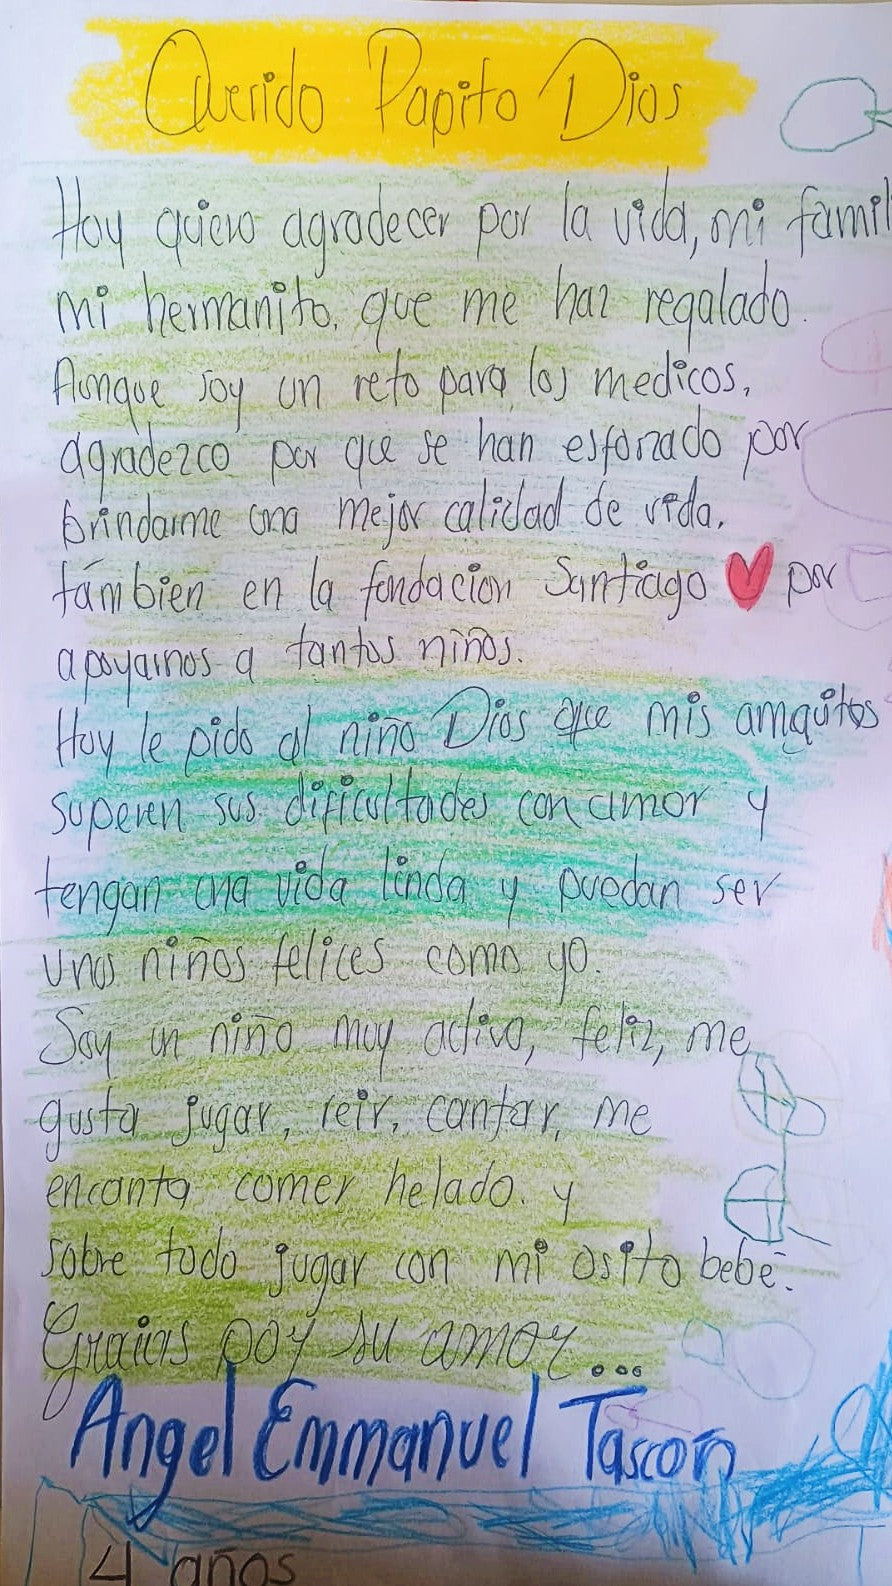 Querido Papito Dios
Hoy quiero agradecer por la vida, mi famil
mi hermanito. que me haz regalado.
Aunque soy un reto para los medicos,
agradezco por que se han esforzado por
brindarme una mejor calidad de vida.
támbien en la fondacion Santiago por
apoyarnos a tantos niños.
Hoy le pido al niño Dios que mis amguitos
superen sus dificultades con amor y
tengan una vida linda y puedan ser
unos niños felices como yo.
Soy un niño muy activo, feliz, me
gusta jugar, reir, cantar, me
encanta comer helado. y
sobre todo jugar con mi osito bebe.
Gracias por su amor...
Angel Emmanuel Tascon
4 años